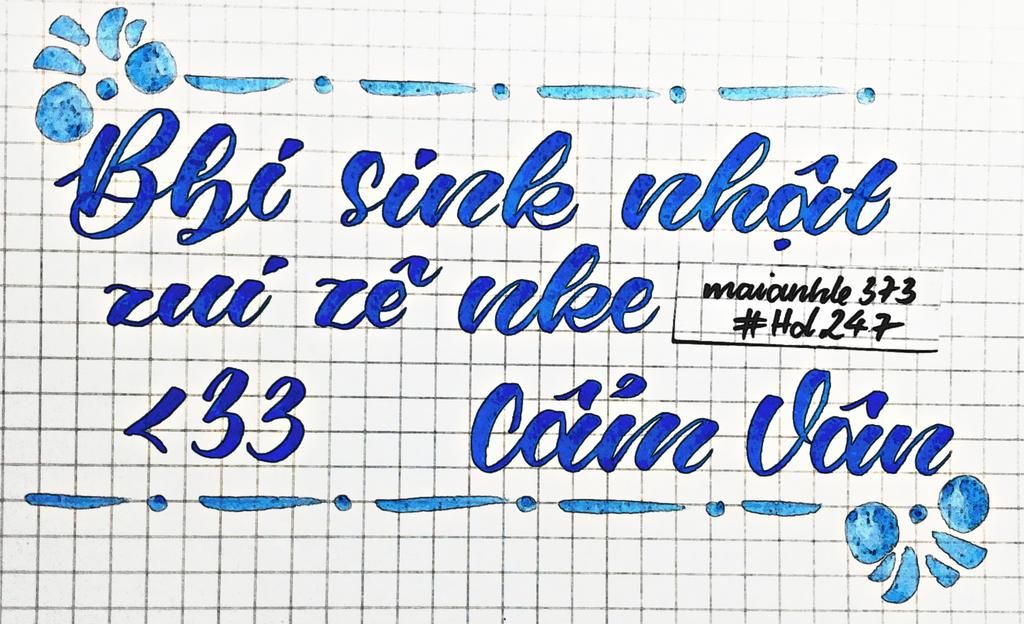 Bhi sink nhật
zui zẽ nke
maianhle 373
#Hd247
<33 Cẩm Vân